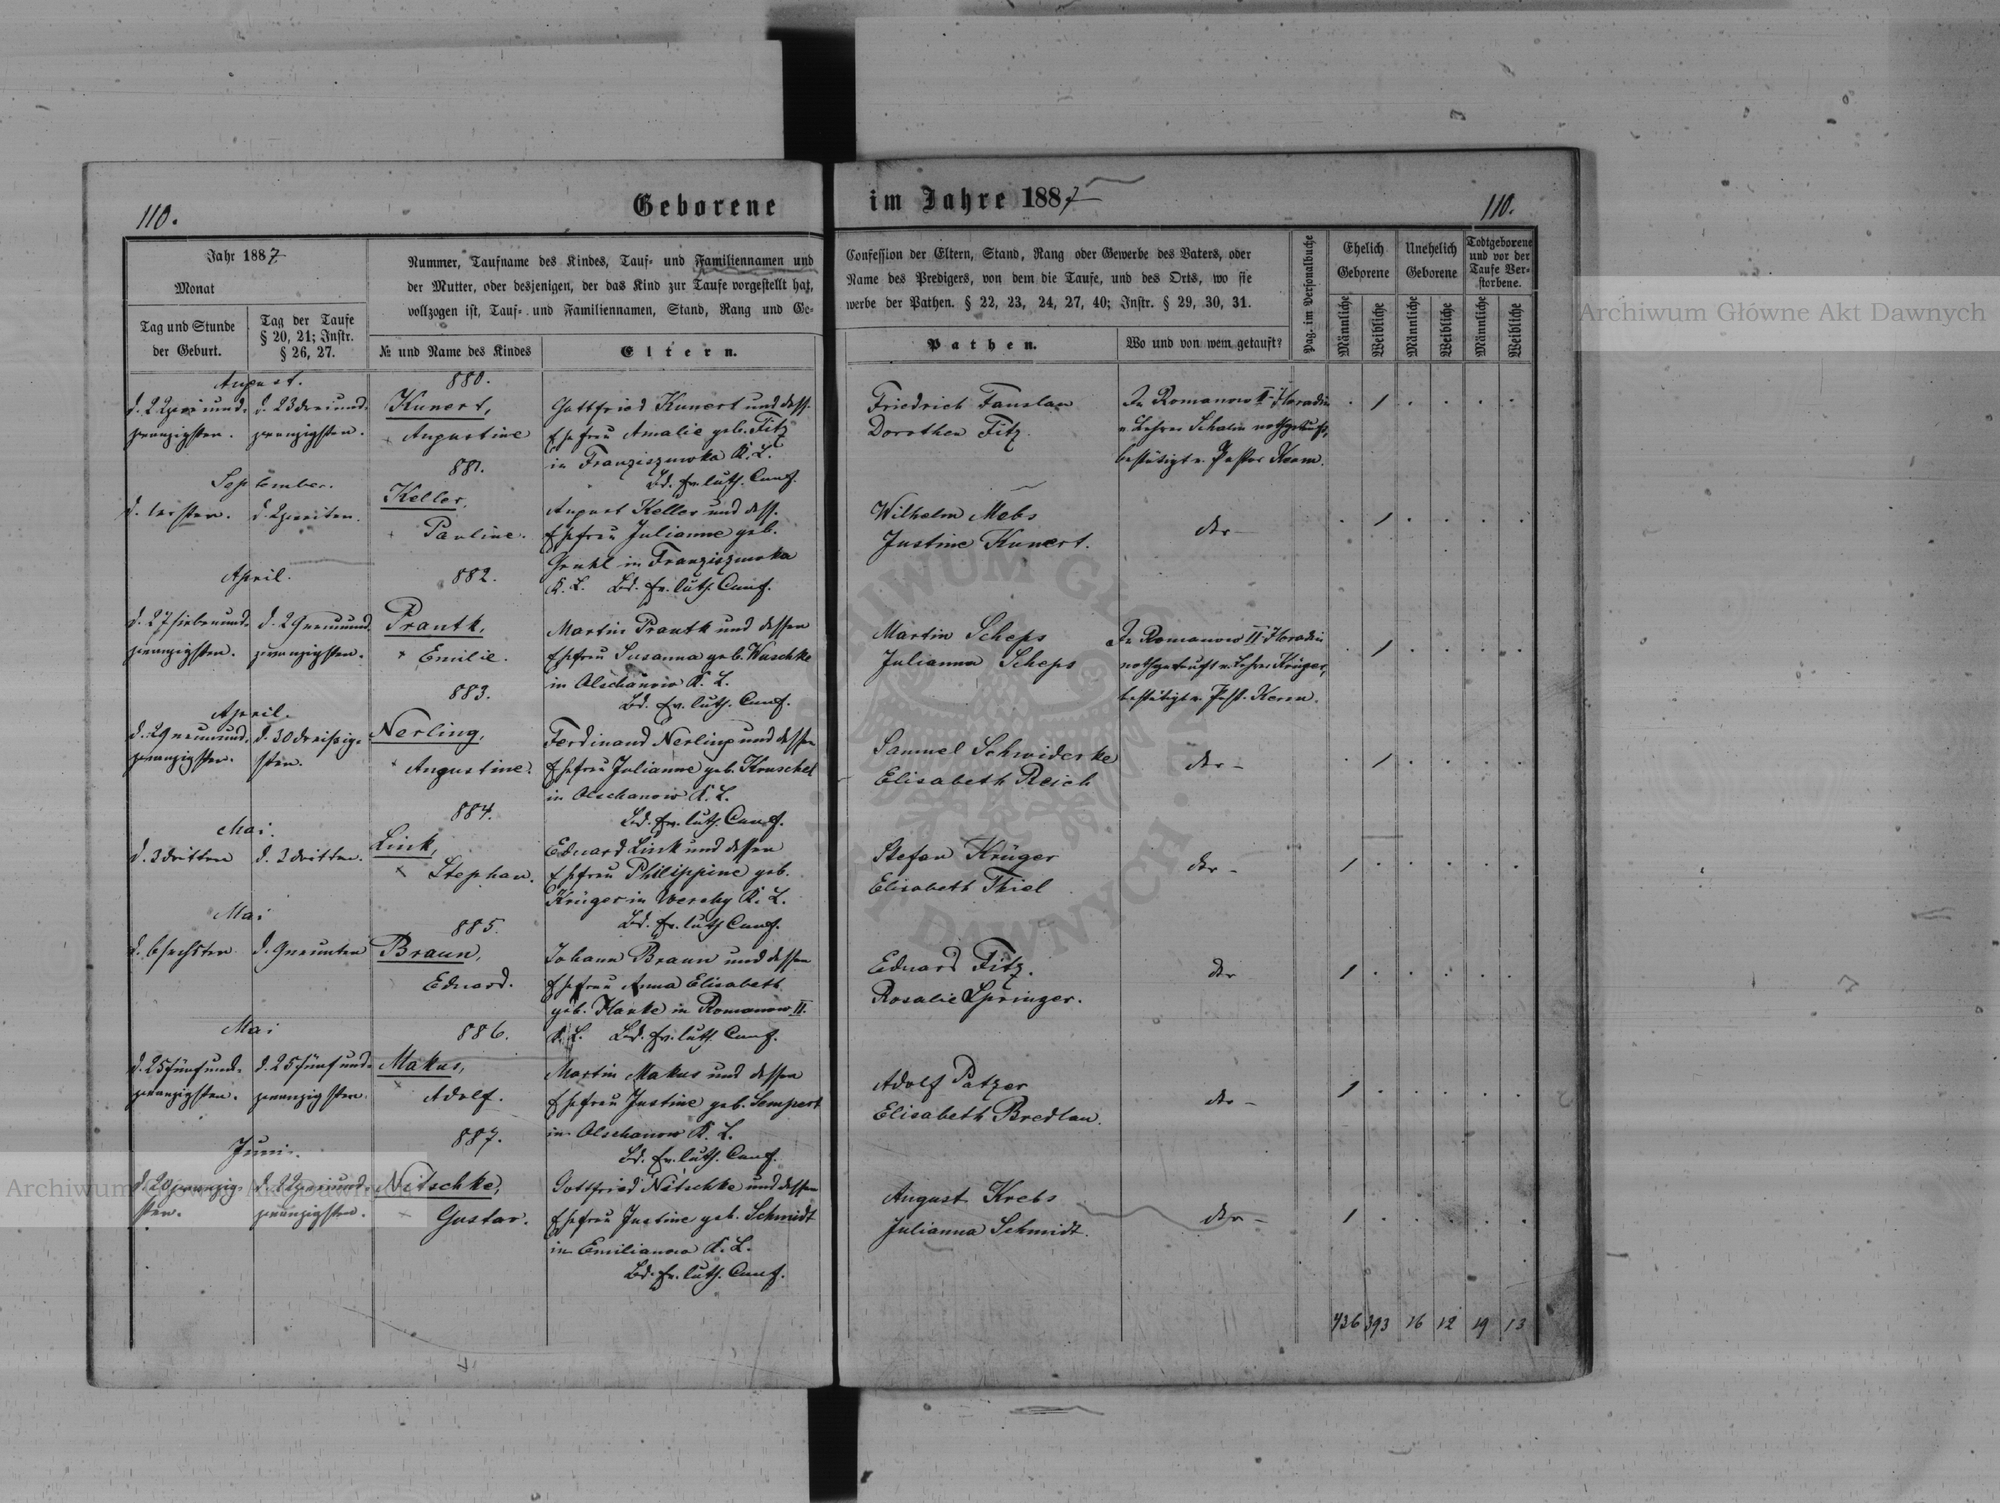 110.
Geborene
im Jahre 1887
110.
Jahr 1887
Monat
Tag und Stunde
der Geburt.
Tag der Taufe
§ 20, 21; Instr.
§ 26, 27.
Nummer, Taufname des Kindes, Tauf- und Familiennamen und
der Mutter, oder desjenigen, der das Kind zur Taufe vorgestellt hat,
vollzogen ist, Tauf- und Familiennamen, Stand, Rang und Ge-
№ und Name des Kindes
Eltern.
Confession der Eltern, Stand, Rang oder Gewerbe des Vaters, oder
Name des Predigers, von dem die Taufe, und des Orts, wo sie
werbe der Pathen. § 22, 23, 24, 27, 40; Instr. § 29, 30, 31.
Pathen.
Wo und von wem getauft?
Pag. im Personalbuche
Ehelich
Geborene
Unehelich
Geborene
Todtgeborene
und vor der
Taufe Ver-
storbene.
Männliche
Weibliche
Männliche
Weibliche
Männliche
Weibliche
August.
d. 22 zwei und-
zwanzigsten.
d. 23 drei und-
zwanzigsten.
880.
Kunert,
Augustine
Gottfried Kunert und dess.
Ehefrau Amalie geb. Fitz
in Franziszuwka K. L.
Bd. ev. luth. Conf.
Friedrich Fanslau
Dorothea Fitz
In Romanow II
v. Lehrer nothgetauft,
bestätigt v. Pastor Kerm.
September.
d. 1 ersten.
d. 2 zweiten.
881.
Keller,
Pauline.
August Keller und dess.
Ehefrau Julianne geb.
in Franziszuwka
K. L. Bd. ev. luth. Conf.
Wilhelm Mebs
Justine Kunert.
dto
April.
d. 27 sieben und-
zwanzigsten.
d. 29 neun und
zwanzigsten.
882.
Prautk,
Emilie.
Martin Prautk und dessen
Ehefrau Susanna geb. Waschke
in Olschanow K. L.
Bd. ev. luth. Conf.
Martin Scheps
Julianna Scheps
In Romanow II
nothgetauft v. Lehrer Krüger,
bestätigt v. Past. Kerm.
April.
d. 29 neun und-
zwanzigsten.
d. 30 dreißig-
sten.
883.
Nerling,
Augustine.
Ferdinand Nerling und dessen
Ehefrau Julianne geb. Kruschel
in Olschanow K. L.
Bd. ev. luth. Conf.
Samuel Schwiderke
Elisabeth Reich
dto
Mai.
d. 3 dritten
d. 3 dritten.
884.
Link,
Stephan.
Eduard Link und dessen
Ehefrau Philippine geb.
Krüger in K. L.
Bd. ev. luth. Conf.
Stefan Krüger
Elisabeth Thiel
dto
Mai
d. 6 sechsten
d. 9 neunten
885.
Braun,
Eduard.
Johann Braun und dessen
Ehefrau Anna Elisabeth
geb. Hanke in Romanow II.
K. L. Bd. ev. luth. Conf.
Eduard Fitz.
Rosalie Springer.
dto
Mai
d. 25 fünf und-
zwanzigsten.
d. 25 fünf und-
zwanzigsten.
886.
Makus,
Adolf.
Martin Makus und dessen
Ehefrau Justine geb. Sempert
in Olschanow K. L.
Bd. ev. luth. Conf.
Adolf Patzer
Elisabeth Bredlau.
dto
Juni.
d. 20 zwanzig-
sten.
d. 22 zwei und-
zwanzigsten.
887.
Nitschke,
Gustav.
Gottfried Nitschke und dessen
Ehefrau Justine geb. Schmidt
in Emilianow K. L.
Bd. ev. luth. Conf.
August Krebs
Julianna Schmidt.
dto
436 393 16 12 19 13
Archiwum Główne Akt Dawnych
Archiwum Główne Akt Dawnych